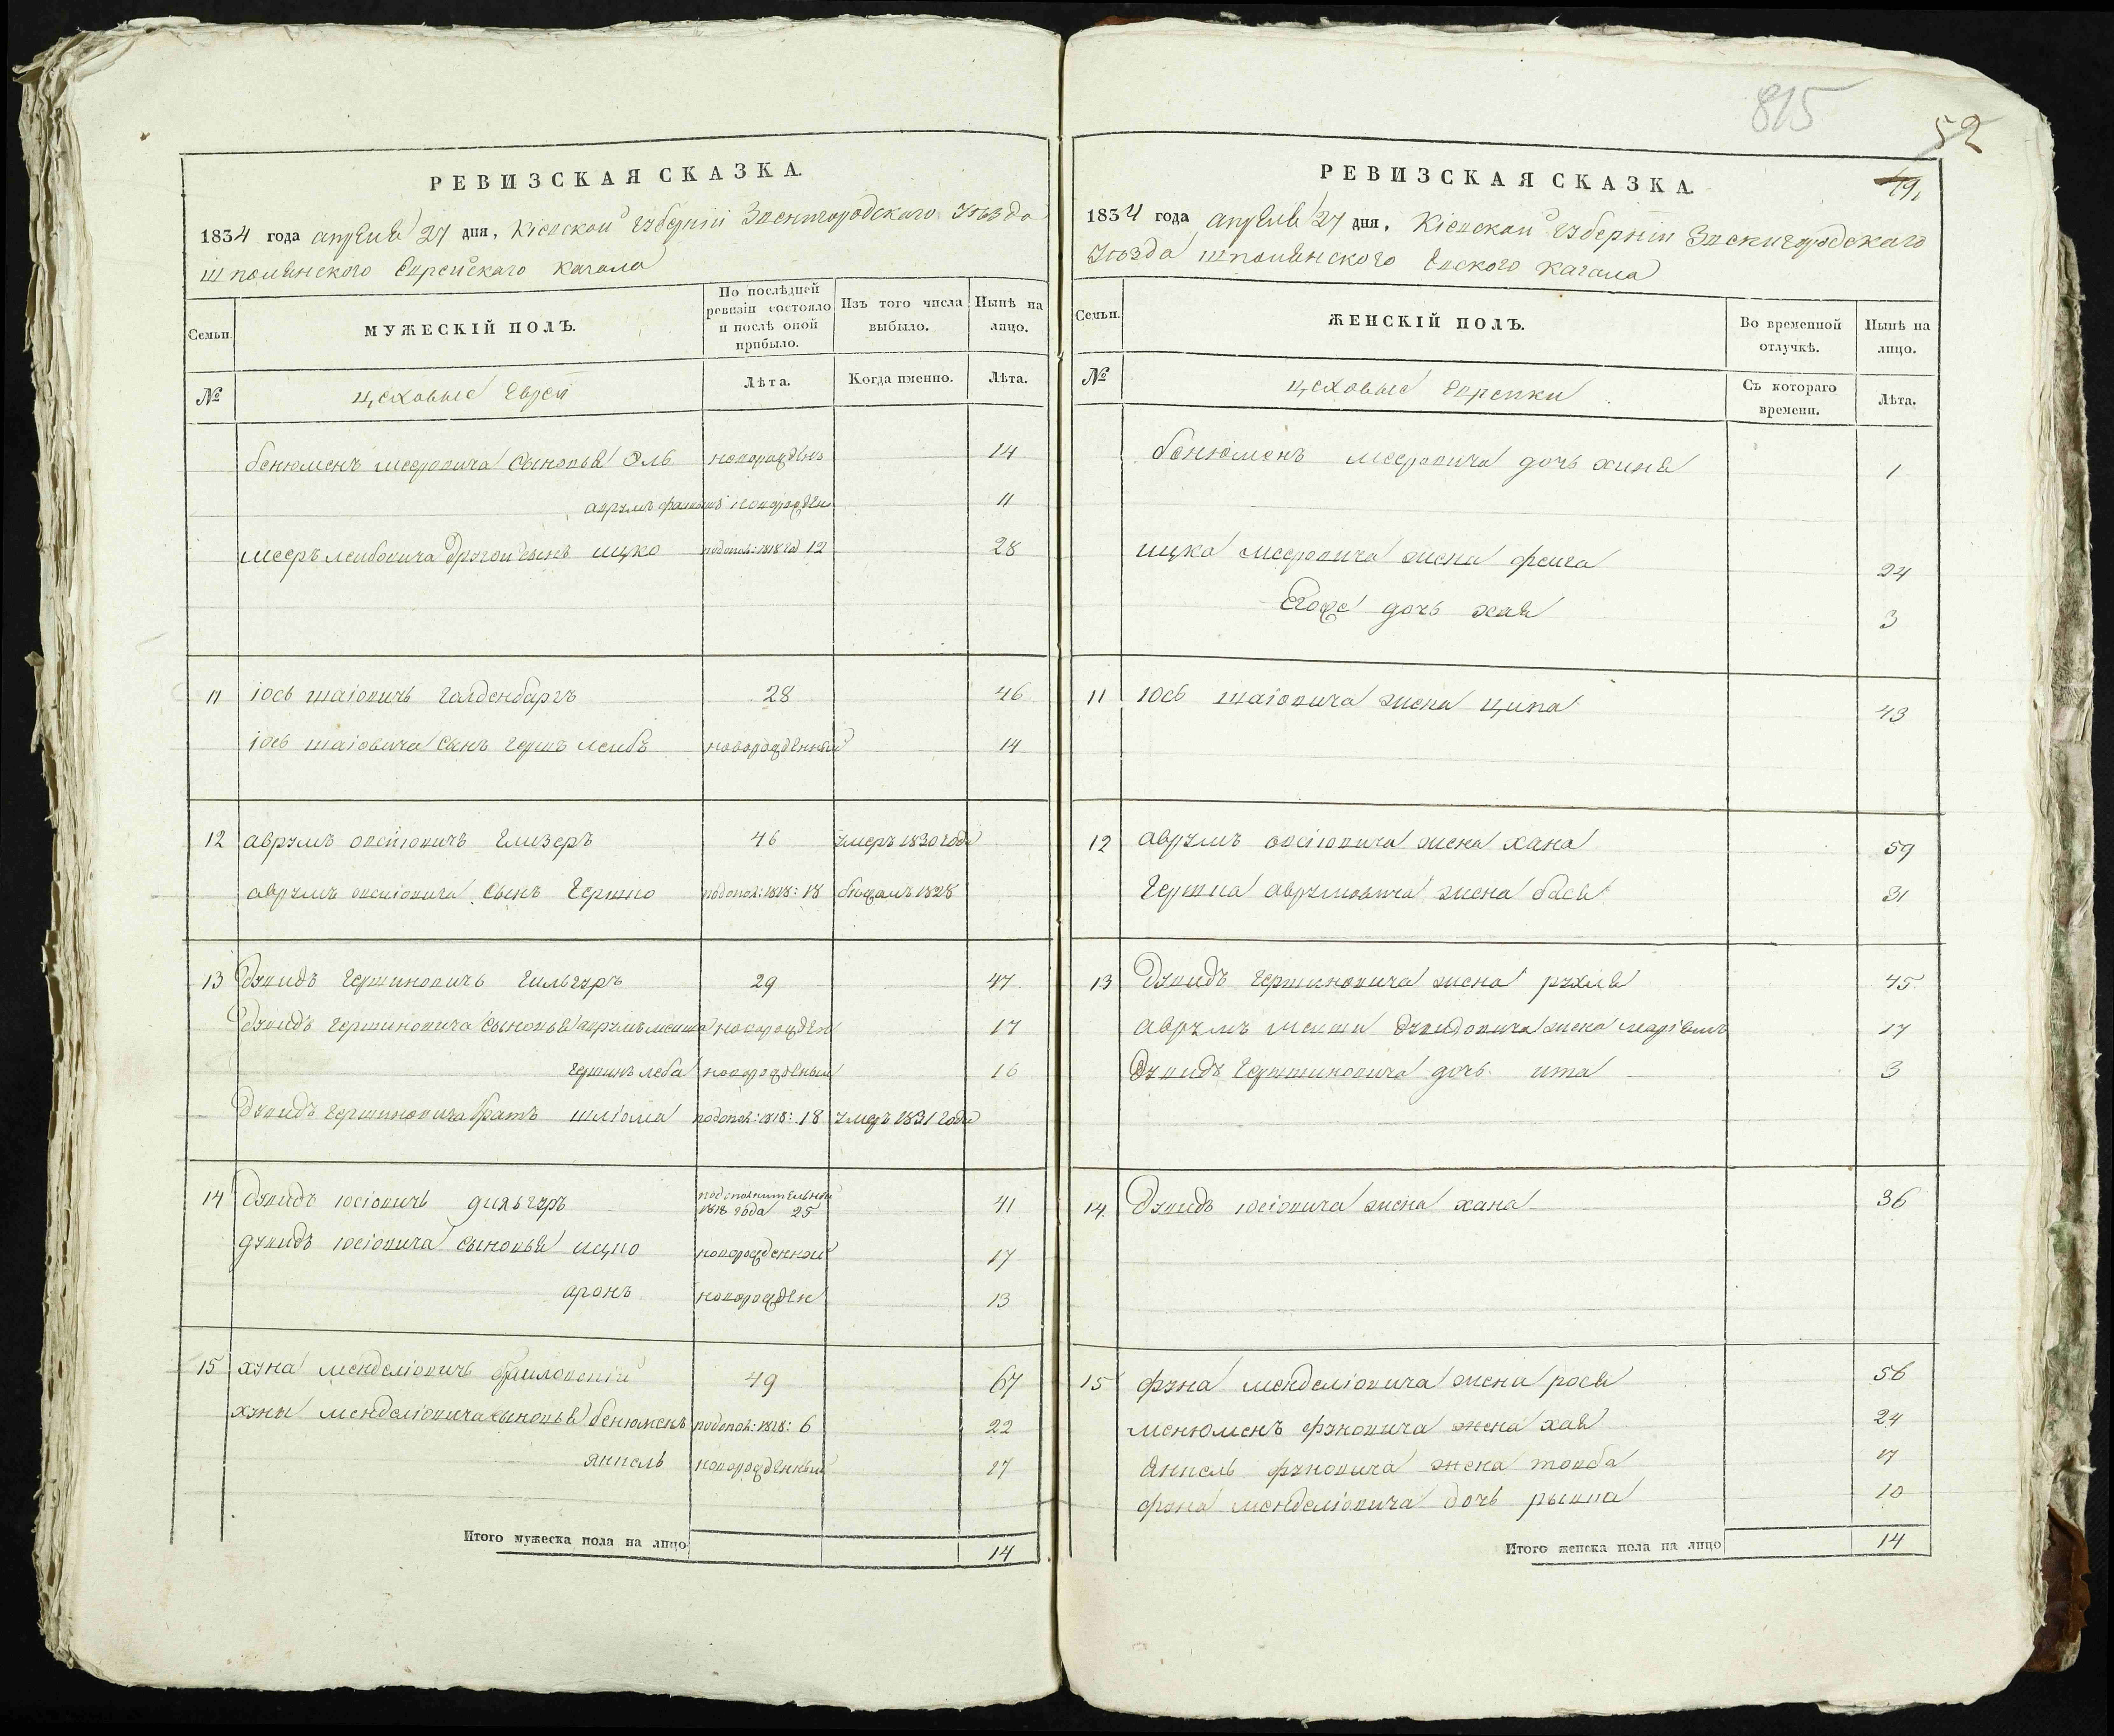 815
52
49
РЕВИЗСКАЯ СКАЗКА.
1834 года апреля 27 дня, Кіевской губерніи Звенигородского уезда
шполянского Еврейскаго кагала
Семьи.
МУЖЕСКІЙ ПОЛЪ.
По послѣдней ревизіи состояло и послѣ оной прибыло.
Изъ того числа выбыло.
Нынѣ на лицо.
№
цеховые Евреи
Лѣта.
Когда именно.
Лѣта.
бенюменъ мееровича сыновья новорожден 14
аврумъ новорожден 11
мееръ лейбовича другой сынъ ицко 12 28
11 іось шаіовичъ галденбаргъ 28 46
іось шаіовича сынъ герш лейбъ новорожденный 14
12 аврумъ глизеръ 46 умеръ 1830 года
аврумъ сынъ Гершко 18 1828
13 Дувидъ Гершковичъ 29 47
Дувидъ Гершковича сыновья аврумъ новорожден 17
новорожденый 16
Дувидъ Гершковича братъ шліома 18 умеръ 1831 года
14 Дувидъ юсіовичъ 1818 года 25 41
дувидъ юсіовича сыновья ицко новорожденной 17
аронъ новорожден 13
15 хуна менделіовичъ 49 67
хуны менделіовича сыновья бенюменъ 6 22
янкель новорожденный 17
Итого мужеска пола на лицо 14
РЕВИЗСКАЯ СКАЗКА.
1834 года апреля 27 дня, Кіевской губерніи Звенигородскаго
уезда шполянского Евского кагала
Семьи.
ЖЕНСКІЙ ПОЛЪ.
Во временной отлучкѣ.
Нынѣ на лицо.
№
цеховые Еврейки
Съ котораго времени.
Лѣта.
бенюменъ мееровича дочь хиня 1
ицка мееровича жена фейга 24
Егоже дочь хая 3
11 юсь шаіовича жена ципа 43
12 аврумъ жена хана 59
Гершка аврумовича жена бася 31
13 Дувидъ Гершковича жена рухля 45
аврумъ Дувидовича жена маріемъ 17
Дувидъ Гершковича дочь ита 3
14 Дувидъ юсіовича жена хана 36
15 фуна менделіовича жена рося 56
менюменъ фуновича жена хая 24
янкель фуновича жена товба 17
фуна менделіовича дочь рывка 10
Итого женска пола на лицо 14